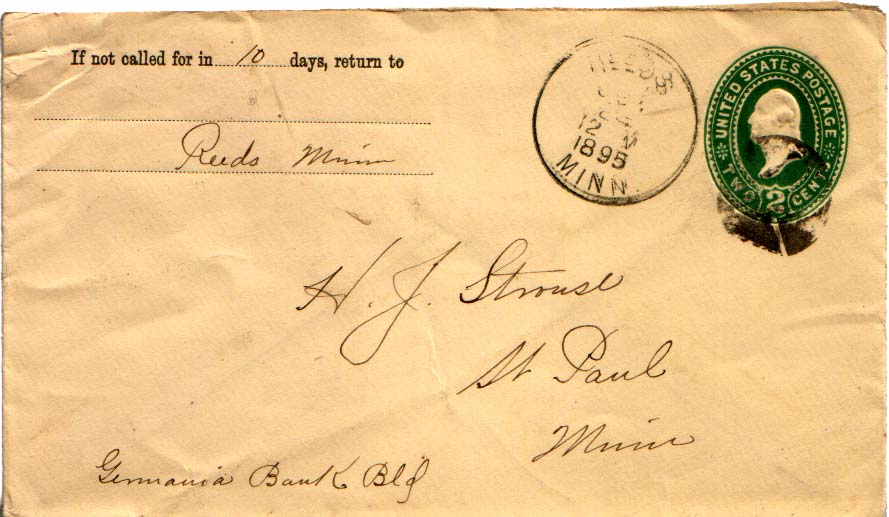 If not called for in 10 days, return to
Reeds Minn
REEDS
24
12 M
1895
MINN.
UNITED STATES POSTAGE
TWO CENTS
2
H. J. Strouse
St Paul
Minn
Germania Bank Bld